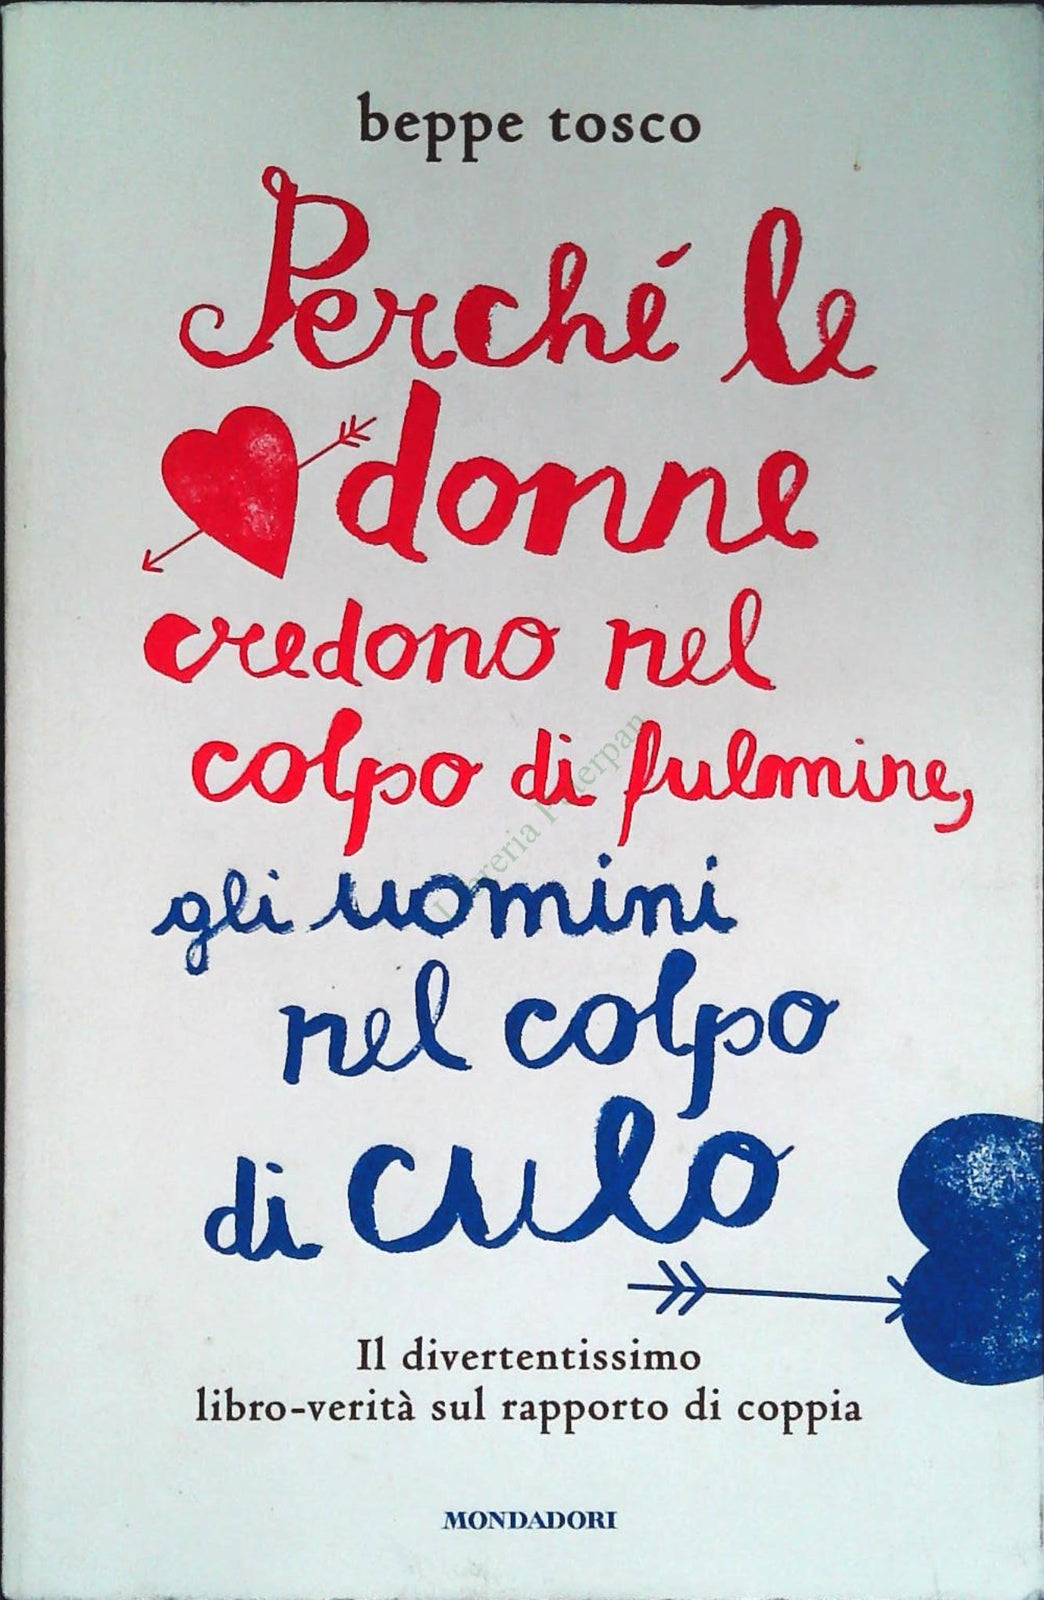 beppe tosco
Perché le
donne
credono nel
colpo di fulmine,
gli uomini
nel colpo
di culo
Il divertentissimo
libro-verità sul rapporto di coppia
MONDADORI
Libreria Peterpan